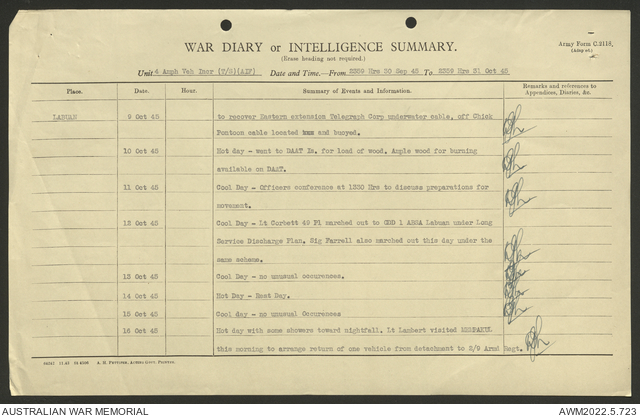 WAR DIARY or INTELLIGENCE SUMMARY.
(Erase heading not required.)
Army Form C.2118.
(Adapted).
Unit 4 Amph Veh (AIF) Date and Time—From 2359 Hrs 30 Sep 45 To 2359 Hrs 31 Oct 45
Place. Date. Hour. Summary of Events and Information. Remarks and references to Appendices, Diaries, &c.
LABUAN 9 Oct 45 to recover Eastern extension Telegraph Corp underwater cable. off Chick
Pontoon cable located and buoyed.
10 Oct 45 Hot day - went to DAAT Is. for load of wood. Ample wood for burning
available on DAAT.
11 Oct 45 Cool Day - Officers conference at 1330 Hrs to discuss preparations for
movement.
12 Oct 45 Cool Day - Lt Corbett 49 Pl marched out to GDD 1 ABSA Labuan under Long
Service Discharge Plan. Sig Farrell also marched out this day under the
same scheme.
13 Oct 45 Cool Day - no unusual occurances.
14 Oct 45 Hot Day - Rest Day.
15 Oct 45 Cool day - no unusual Occurances
16 Oct 45 Hot day with some showers toward nightfall. Lt Lambert visited
this morning to arrange return of one vehicle from detachment to 2/9 Armd Regt.
A. H. Pettifer, Acting Govt. Printer.
AUSTRALIAN WAR MEMORIAL
AWM2022.5.723